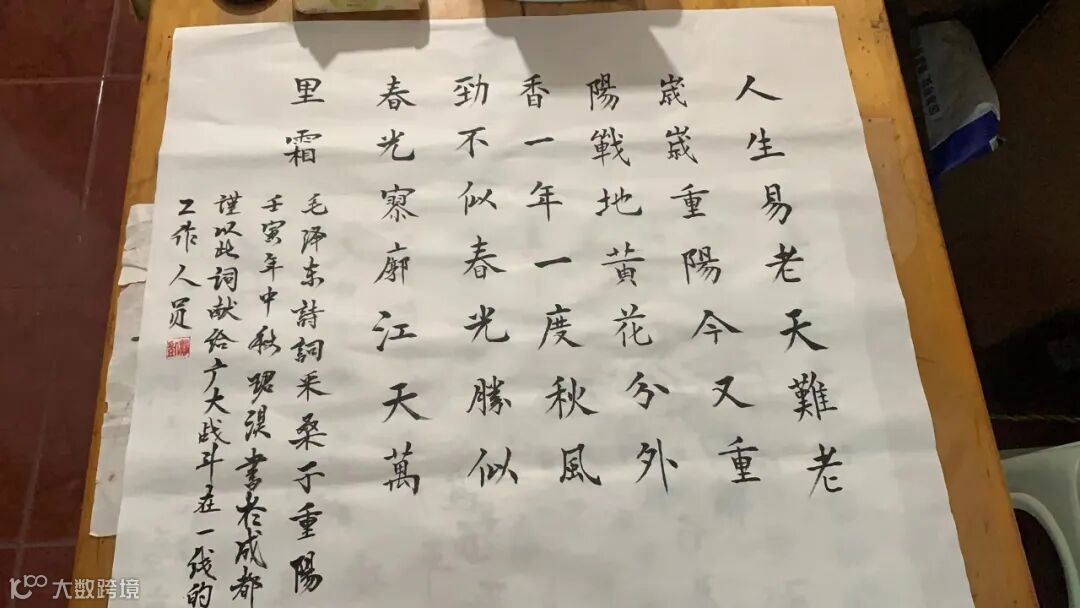 人生易老天難老
嵗嵗重陽今又重
陽戰地黃花分外
香一年一度秋風
勁不似春光勝似
春光寥廓江天萬
里霜
毛泽东詩詞采桑子重陽
壬寅年中秋 書於成都
謹以此詞献给广大战斗在一线的
工作人员
大数跨境